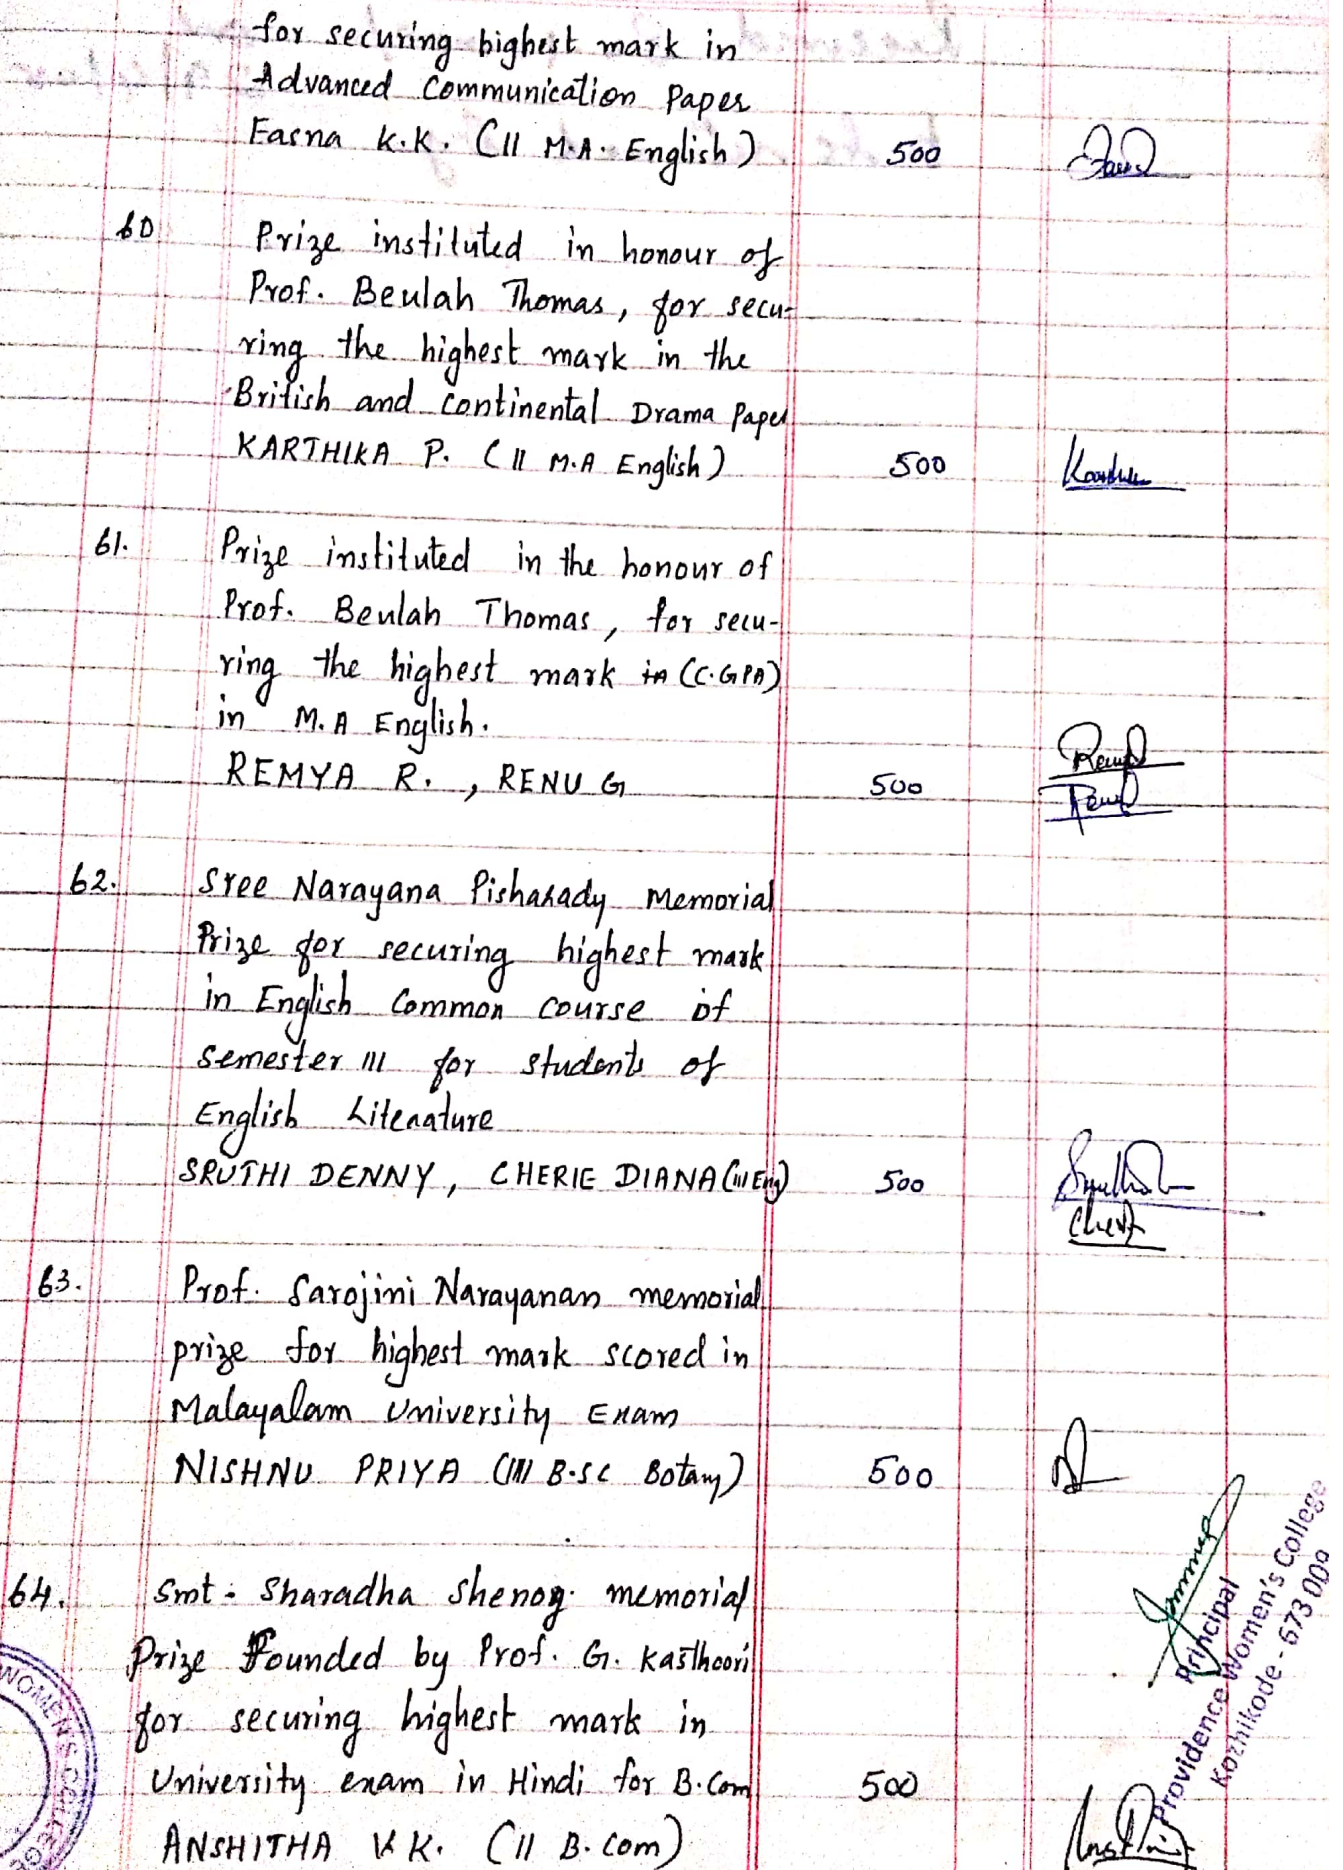 for securing highest mark in
Advanced Communication Paper
Fasna K.K. (II M.A. English) 500
60 Prize instituted in honour of
Prof. Beulah Thomas, for secu-
ring the highest mark in the
British and Continental Drama Paper
KARTHIKA P. (II M.A English) 500
61. Prize instituted in the honour of
Prof. Beulah Thomas, for secu-
ring the highest mark in (C.GPA)
in M.A English.
REMYA R., RENU G 500
62. Sree Narayana Pisharady Memorial
Prize for securing highest mark
in English Common Course of
Semester III for students of
English Literature
SRUTHI DENNY, CHERIE DIANA (III Eng) 500
63. Prof. Sarojini Narayanan memorial
prize for highest mark scored in
Malayalam University Exam
NISHNU PRIYA (III B.SC Botany) 500
64. Smt. Sharadha Shenoy memorial
Prize Founded by Prof. G. Kasthoori
for securing highest mark in
University exam in Hindi for B.Com 500
ANSHITHA V K. (II B.Com)
Principal
Providence Women's College
Kozhikode - 673 009
WOMEN'S COLLEGE